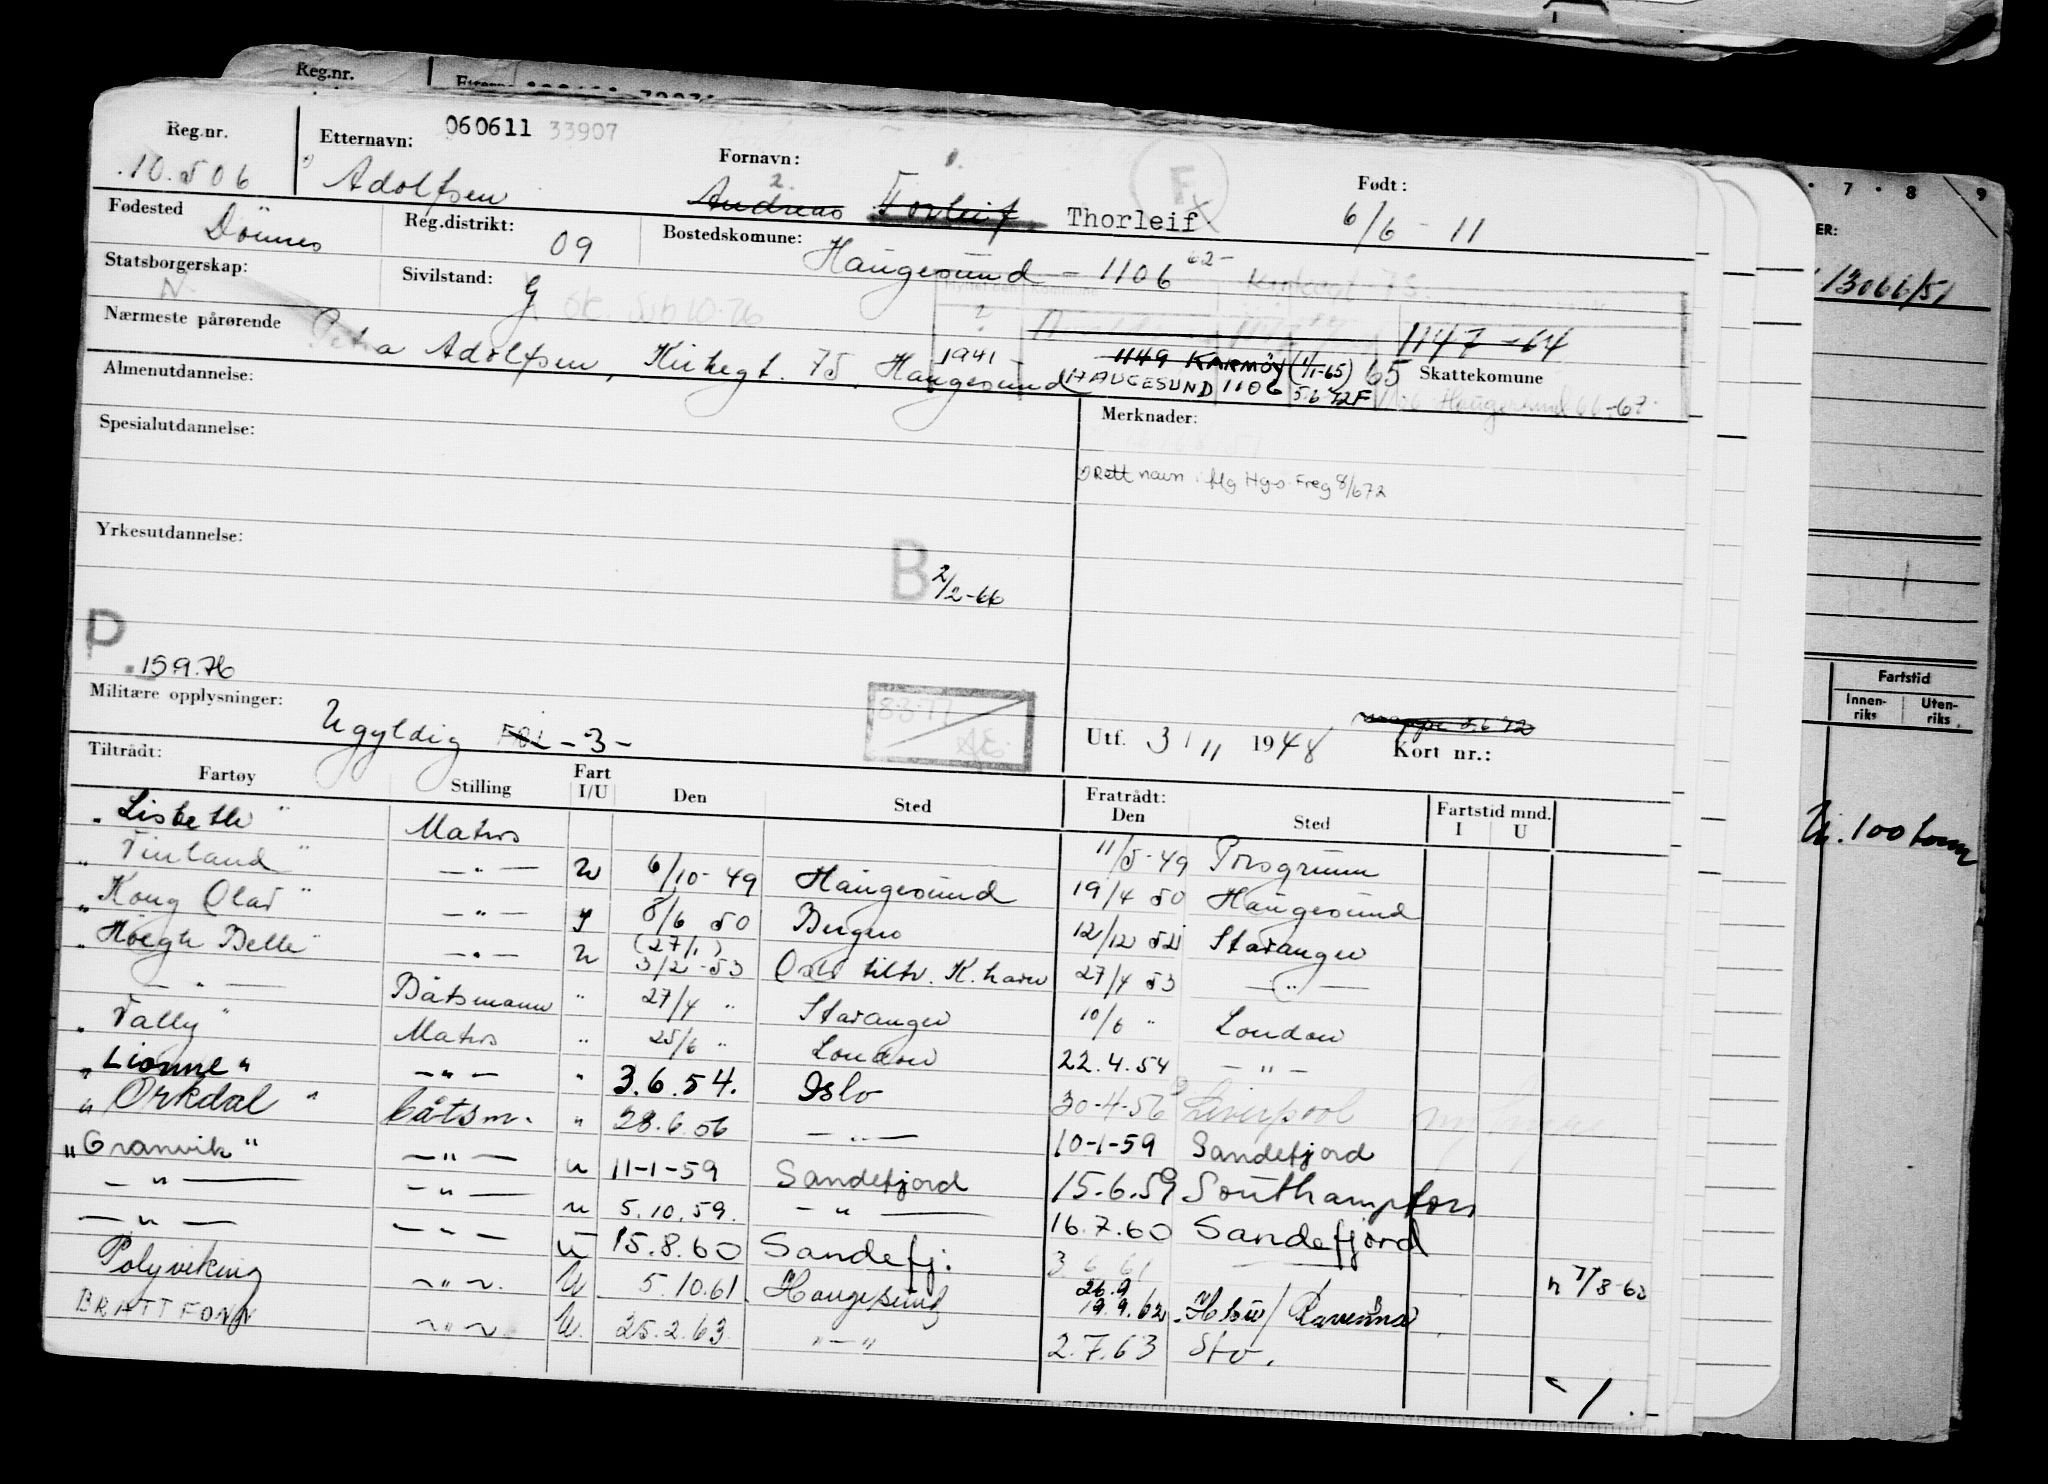 Reg.nr. Etternavn: 060611 33907 Fornavn: Født:
10.506 Adolfsen Andreas Torleif Thorleif 6/6-11
Fødested Dönnes Reg.distrikt: 09 Bostedskomune: Haugesund - 1106 62-
Statsborgerskap: N. Sivilstand: G
Nærmeste pårørende Petra Adolfsen, Kirkegt. 75, Haugesund
1147-64
1941 - 1149 KARMÖY (1/1-65) 65 Skattekomune
HAUGESUND 1106 5.6.72F Haugesund 66-67
Almenutdannelse: Merknader:
Spesialutdannelse:
Rett navn Hgs. Freg 8/672
Yrkesutdannelse:
B 2/2-66
P. 15.9.76
Militære opplysninger: Ugyldig -3-
8.3.77
Utf. 3/11 1948 Kort nr.:
Tiltrådt: Fratrådt: Fartstid mnd.
Fartøy Stilling Fart I/U Den Sted Den Sted I U
"Lisbeth" Matros 11/5-49 Porsgrunn
"Vinland" -"- U 6/10-49 Haugesund 19/4 50 Haugesund
"Kong Olav" -"- 8/6 50 Bergen 12/12 52 Stavanger
"Höegh Belle" -"- U (27/1) 3/2-53 Oslo tiltr. K.havn 27/4 53 -"-
-"- Båtsmann " 27/4 " Stavanger 10/6 " London
Matros " 25/6 " London 22.4.54 -"-
"Lionne" -"- " 3.6.54. Oslo 30-4-56 Liverpool
"Orkdal" båtsm. " 28.6.56 -"- 10-1-59 Sandefjord
"Granvik" -"- u 11-1-59 Sandefjord 15.6.59 Southampton
-"- -"- u 5.10.59. -"- 16.7.60 Sandefjord
-"- -"- u 15.8.60 Sandefj. 3 6 61 n 7/8-62
Polyviking -"- U 5.10.61. Haugesund 26.9 19.9.62 Ravenna
BRATTFONN -"- U. 25.2.63. "-" 2.7.63 Sto.
Reg.nr.
7 8 9
ER:
13066/51
Fartstid
Innen-riks Uten-riks
100 tonn